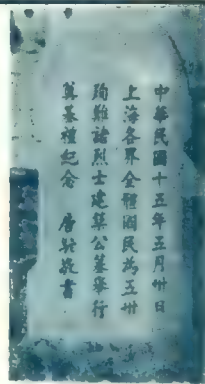 中華民國十五年五月卅日
上海各界全體國民為五卅
殉難諸烈士建築公墓舉行
奠基禮紀念 唐駝敬書